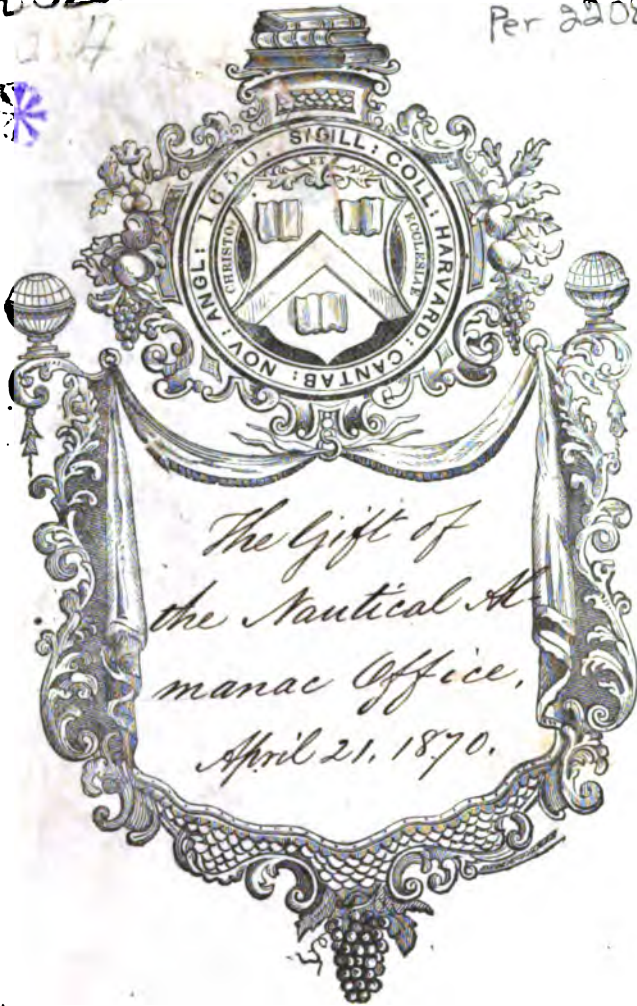 Per 220
SIGILL: COLL: HARVARD: CANTAB: NOV: ANGL: 1650.
CHRISTO
ET
ECCLESIAE
The Gift of
the Nautical Al-
manac Office,
April 21. 1870.